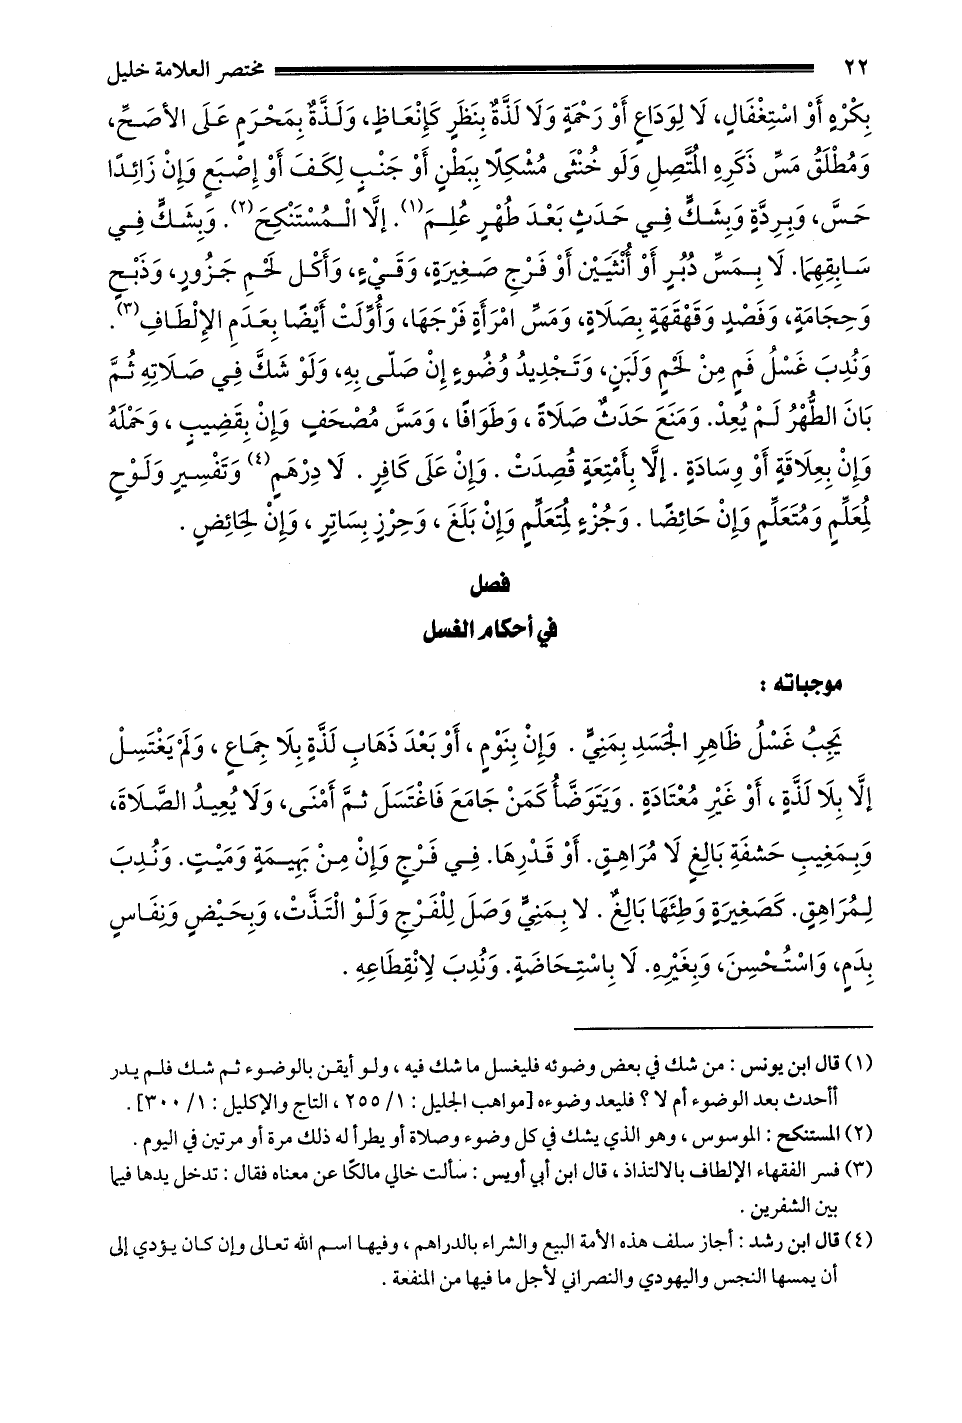 ٢٢ مختصر العلامة خليل
بِكُرْهٍ أَوْ اسْتِغْفَالٍ، لَا لِوَدَاعٍ أَوْ رَحْمَةٍ وَلَا لَذَّةٌ بِنَظَرٍ كَإِنْعَاظٍ، وَلَذَّةٌ بِمَحْرَمٍ عَلَى الأصَحِّ،
وَمُطْلَقُ مَسِّ ذَكَرِهِ المُتَّصِلِ وَلَو خُنْثَى مُشْكِلًا بِبَطْنٍ أَوْ جَنْبٍ لِكَفٍ أَوْ إِصْبَعٍ وَإِنْ زَائِدًا
حَسَّ، وَبِرِدَّةٍ وَبِشَكٍّ فِي حَدَثٍ بَعْدَ طُهْرٍ عُلِمَ(١). إلَّا الْمُسْتَنْكِحَ(٢). وَبِشَكٍّ فِي
سَابِقِهِمَا. لَا بِمَسِّ دُبُرٍ أَوْ أُنْثَيَيْنِ أَوْ فَرْجِ صَغِيرَةٍ، وَقَيْءٍ، وَأَكْلِ لَحْمِ جَزُورٍ، وَذَبْحٍ
وَحِجَامَةٍ، وَفَصْدٍ وَقَهْقَهَةٍ بِصَلَاةٍ، وَمَسِّ امْرَأَةٍ فَرْجَهَا، وَأُوِّلَتْ أَيْضًا بِعَدَمِ الإِلْطَافِ(٣).
وَنُدِبَ غَسْلُ فَمٍ مِنْ لَحْمٍ وَلَبَنٍ، وَتَجْدِيدُ وُضُوءٍ إِنْ صَلَّى بِهِ، وَلَوْ شَكَّ فِي صَلَاتِهِ ثُمَّ
بَانَ الطُّهْرُ لَمْ يُعِدْ. وَمَنَعَ حَدَثٌ صَلَاةً ، وَطَوَافًا ، وَمَسَّ مُصْحَفٍ وَإِنْ بِقَضِيبٍ ، وَحَمْلَهُ
وَإِنْ بِعِلَاقَةٍ أَوْ وِسَادَةٍ . إلَّا بِأَمْتِعَةٍ قُصِدَتْ . وَإِنْ عَلَى كَافِرٍ . لَا دِرْهَمٍ(٤) وَتَفْسِيرٍ وَلَوْحٍ
لِمُعَلِّمٍ وَمُتَعَلِّمٍ وَإِنْ حَائِضًا . وَجُزْءٍ لِمُتَعَلِّمٍ وَإِنْ بَلَغَ ، وَحِرْزٍ بِسَاتِرٍ ، وَإِنْ لِحَائِضٍ .
فصل
في أحكام الغسل
موجباته :
يَجِبُ غَسْلُ ظَاهِرِ الْجَسَدِ بِمَنِيٍّ . وَإِنْ بِنَوْمٍ ، أَوْ بَعْدَ ذَهَابِ لَذَّةٍ بِلَا جِمَاعٍ ، وَلَمْ يَغْتَسِلْ
إلَّا بِلَا لَذَّةٍ ، أَوْ غَيْرِ مُعْتَادَةٍ . وَيَتَوَضَّأُ كَمَنْ جَامَعَ فَاغْتَسَلَ ثُمَّ أَمْنَى، وَلَا يُعِيدُ الصَّلَاةَ،
وَبِمَغِيبِ حَشَفَةِ بَالِغٍ لَا مُرَاهِقٍ. أَوْ قَدْرِهَا. فِي فَرْجٍ وَإِنْ مِنْ بَهِيمَةٍ وَمَيْتٍ. وَنُدِبَ
لِمُرَاهِقٍ. كَصَغِيرَةٍ وَطِئَهَا بَالِغٌ . لا بِمَنِيٍّ وَصَلَ لِلْفَرْجِ وَلَوْ الْتَذَّتْ، وَبِحَيْضٍ وَنِفَاسٍ
بِدَمٍ، وَاسْتُحْسِنَ، وَبِغَيْرِهِ. لَا بِاسْتِحَاضَةٍ. وَنُدِبَ لِانْقِطَاعِهِ .
(١) قال ابن يونس : من شك في بعض وضوئه فليغسل ما شك فيه ، ولو أيقن بالوضوء ثم شك فلم يدر
أأحدث بعد الوضوء أم لا ؟ فليعد وضوءه [مواهب الجليل : ١/ ٢٥٥ ، التاج والإكليل : ١/ ٣٠٠] .
(٢) المستنكح : الموسوس ، وهو الذي يشك في كل وضوء وصلاة أو يطرأ له ذلك مرة أو مرتين في اليوم .
(٣) فسر الفقهاء الإلطاف بالالتذاذ ، قال ابن أبي أويس : سألت خالي مالكًا عن معناه فقال : تدخل يدها فيما
بين الشفرين .
(٤) قال ابن رشد : أجاز سلف هذه الأمة البيع والشراء بالدراهم ، وفيها اسم الله تعالى وإن كان يؤدي إلى
أن يمسها النجس واليهودي والنصراني لأجل ما فيها من المنفعة .